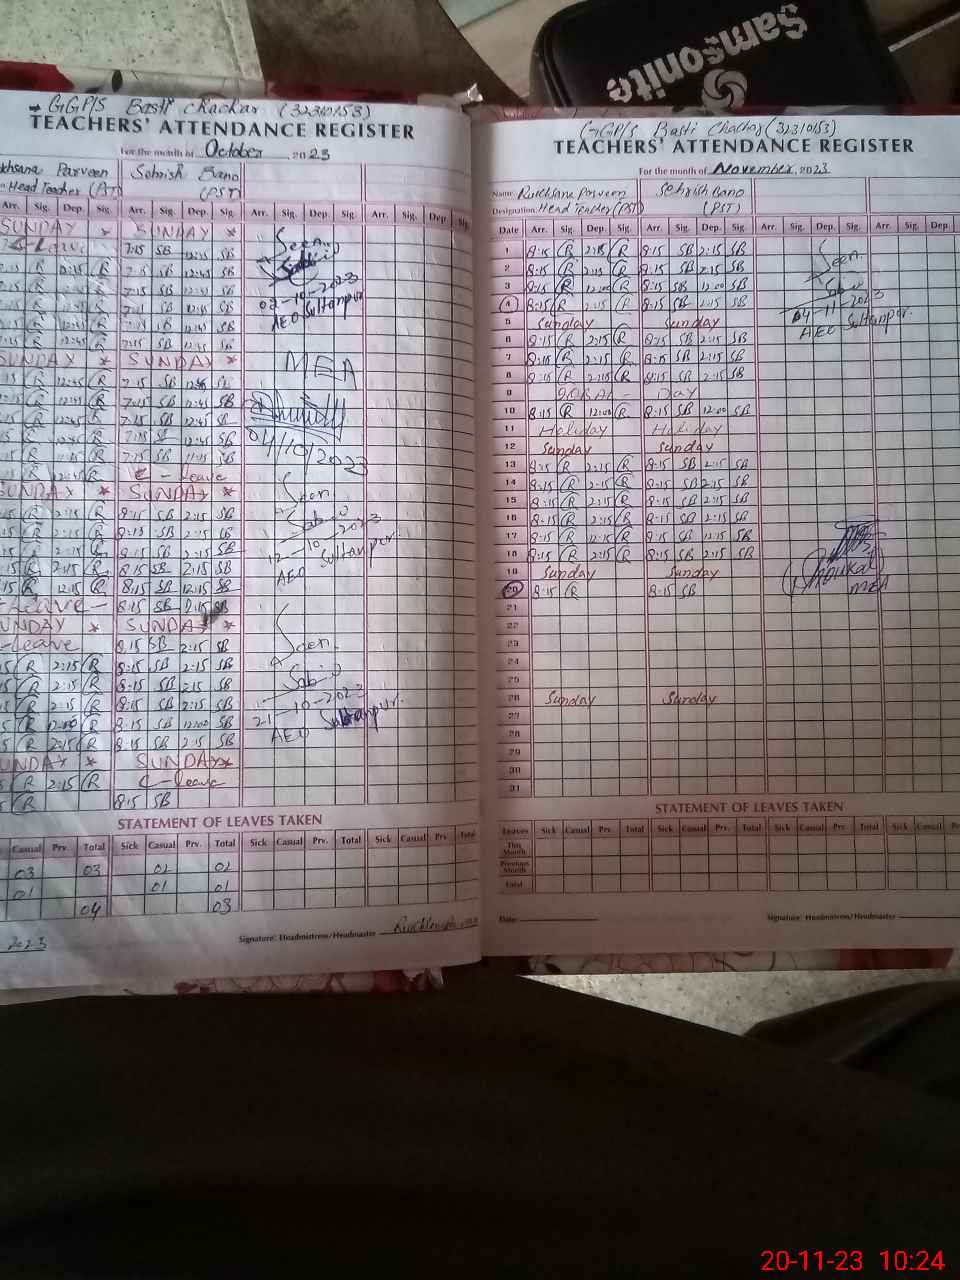 Samsonite
→ GGP/S Basti Chachar (32310153)
TEACHERS' ATTENDANCE REGISTER
For the month of October 2023
Parveen Sehrish Bano
Head Teacher (PST) (PST)
Arr. Sig. Dep. Sig. Arr. Sig. Dep. Sig. Arr. Sig. Dep. Sig. Arr. Sig. Dep. Sig.
SUNDAY * SUNDAY *
Leave 7:15 SB 12:45 SB
R 12:45 R 7:15 SB 12:45 SB
R 12:45 R 7:15 SB 12:45 SB
R 12:45 R 7:15 SB 12:45 SB
R 12:45 R 7:15 SB 12:45 SB
R 12:45 R 7:15 SB 12:45 SB
SUNDAY * SUNDAY *
R 12:45 R 7:15 SB 12:45 SB
R 12:45 R 7:15 SB 12:45 SB
R 12:45 R 7:15 SB 12:45 SB
R 12:45 R 7:15 SB 12:45 SB
R 11:15 R 7:15 SB 11:15 SB
R 12:45 R C-leave
SUNDAY * SUNDAY *
R 2:15 R 8:15 SB 2:15 SB
R 2:15 R 8:15 SB 2:15 SB
R 2:15 R 8:15 SB 2:15 SB
R 2:15 R 8:15 SB 2:15 SB
R 12:15 R 8:15 SB 12:15 SB
-Leave- 8:15 SB 2:15 SB
SUNDAY * SUNDAY *
-leave 8:15 SB 2:15 SB
R 2:15 R 8:15 SB 2:15 SB
R 2:15 R 8:15 SB 2:15 SB
R 2:15 R 8:15 SB 2:15 SB
R 12:00 R 8:15 SB 12:00 SB
R 2:15 R 8:15 SB 2:15 SB
SUNDAY * SUNDAY *
R 2:15 R C-leave
R 8:15 SB
Seen
02-10-2023
AEO Sultanpur
MEA
04/10/2023
Seen
12-10-2023
AEO Sultanpur.
Seen.
21-10-2023
AEO Sultanpur.
STATEMENT OF LEAVES TAKEN
Casual Prv. Total Sick Casual Prv. Total Sick Casual Prv. Total Sick Casual Prv. Total
03 03 02 02
01 01 01
04 03
2023 Signature: Headmistress/Headmaster
GGP/S Basti Chachar (32310153)
TEACHERS' ATTENDANCE REGISTER
For the month of November, 2023
Name: Rukhsana Parveen Sehrish Bano
Designation: Head Teacher (PST) (PST)
Date Arr. Sig. Dep. Sig. Arr. Sig. Dep. Sig. Arr. Sig. Dep. Sig. Arr. Sig. Dep.
1 8:15 R 2:15 R 8:15 SB 2:15 SB
2 8:15 R 2:15 R 8:15 SB 2:15 SB
3 8:15 R 12:00 R 8:15 SB 12:00 SB
4 8:15 R 2:15 R 8:15 SB 2:15 SB
5 Sunday Sunday
6 8:15 R 2:15 R 8:15 SB 2:15 SB
7 8:15 R 2:15 R 8:15 SB 2:15 SB
8 8:15 R 2:15 R 8:15 SB 2:15 SB
9 IQBAL - DAY
10 8:15 R 12:00 R 8:15 SB 12:00 SB
11 Holiday Holiday
12 Sunday Sunday
13 8:15 R 2:15 R 8:15 SB 2:15 SB
14 8:15 R 2:15 R 8:15 SB 2:15 SB
15 8:15 R 2:15 R 8:15 SB 2:15 SB
16 8:15 R 2:15 R 8:15 SB 2:15 SB
17 8:15 R 12:15 R 8:15 SB 12:15 SB
18 8:15 R 2:15 R 8:15 SB 2:15 SB
19 Sunday Sunday
20 8:15 R 8:15 SB
21
22
23
24
25
26 Sunday Sunday
27
28
29
30
31
Seen.
04-11-2023
AEO Sultanpur.
Shoukat
MEA
STATEMENT OF LEAVES TAKEN
Leaves Sick Casual Prv. Total Sick Casual Prv. Total Sick Casual Prv. Total Sick Casual Prv.
This Month
Previous Month
Total
Date Signature: Headmistress/Headmaster
20-11-23 10:24